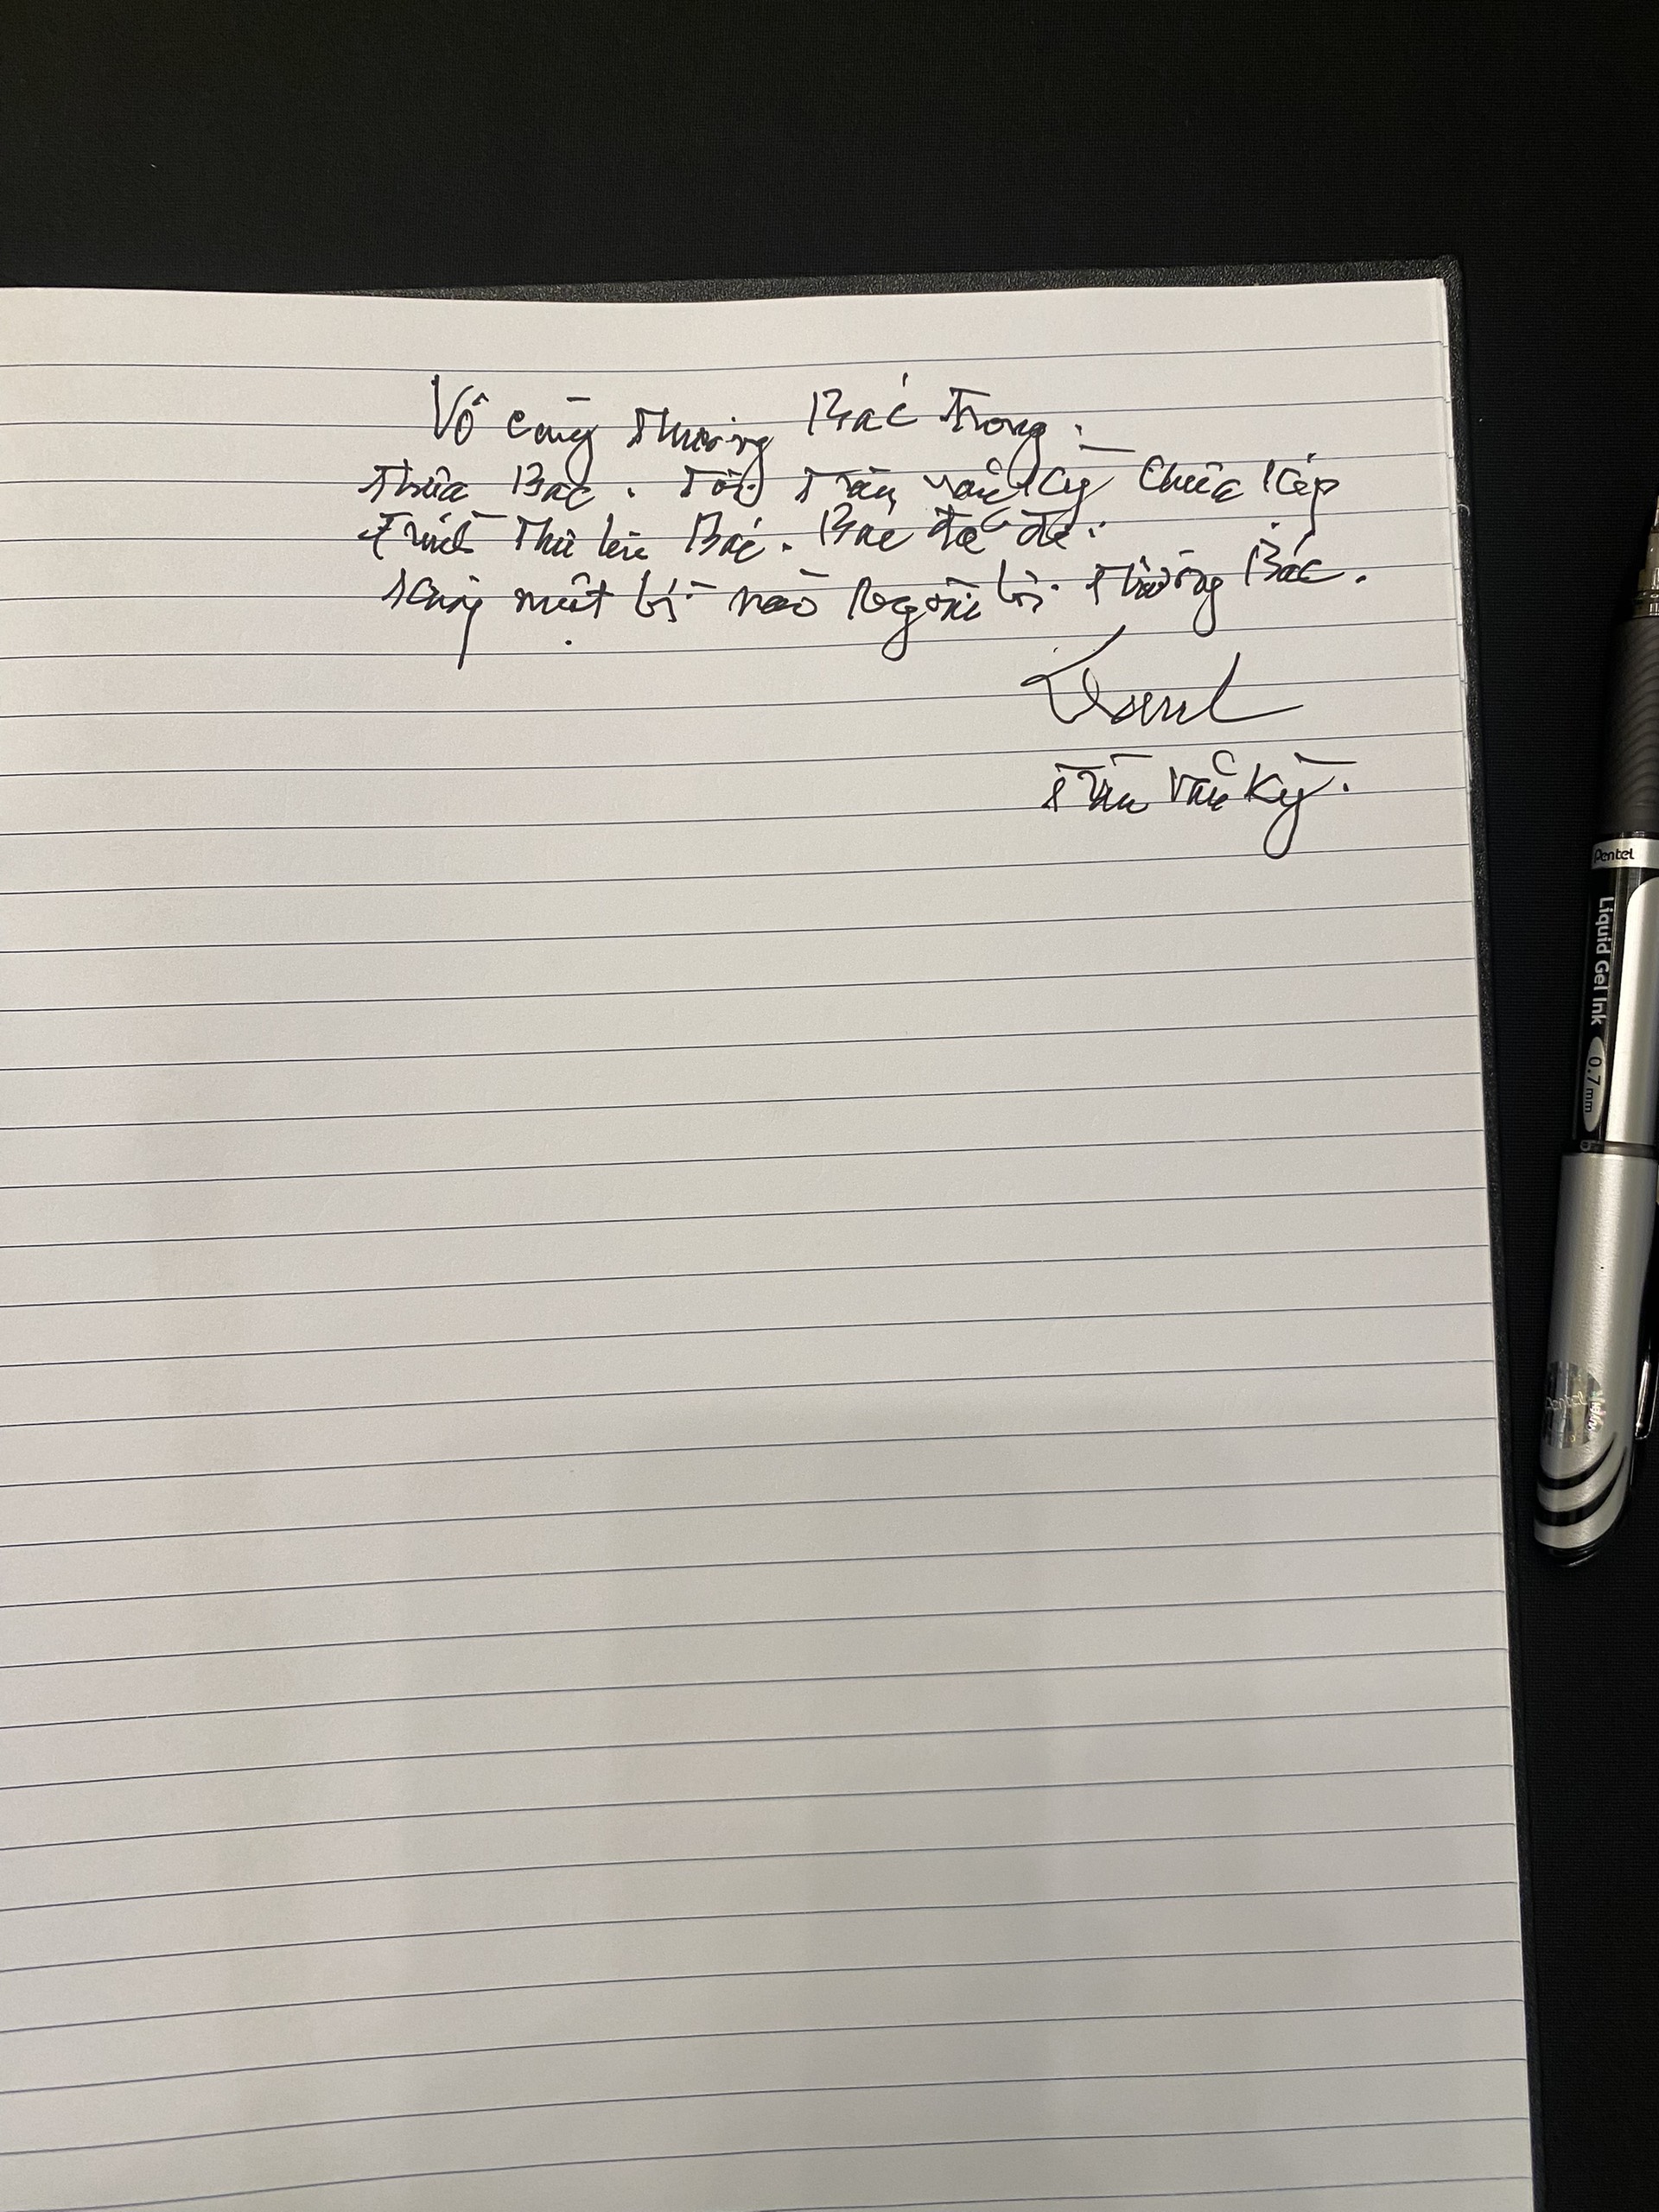 Vô cùng thương Bác Trọng.
Thưa Bác. Tôi Trần Văn Kỳ chưa kịp
trình thư lên Bác. Bác đã đi.
mất nào thương Bác.
Trần Văn Kỳ.
Pentel
Liquid Gel Ink 0.7mm